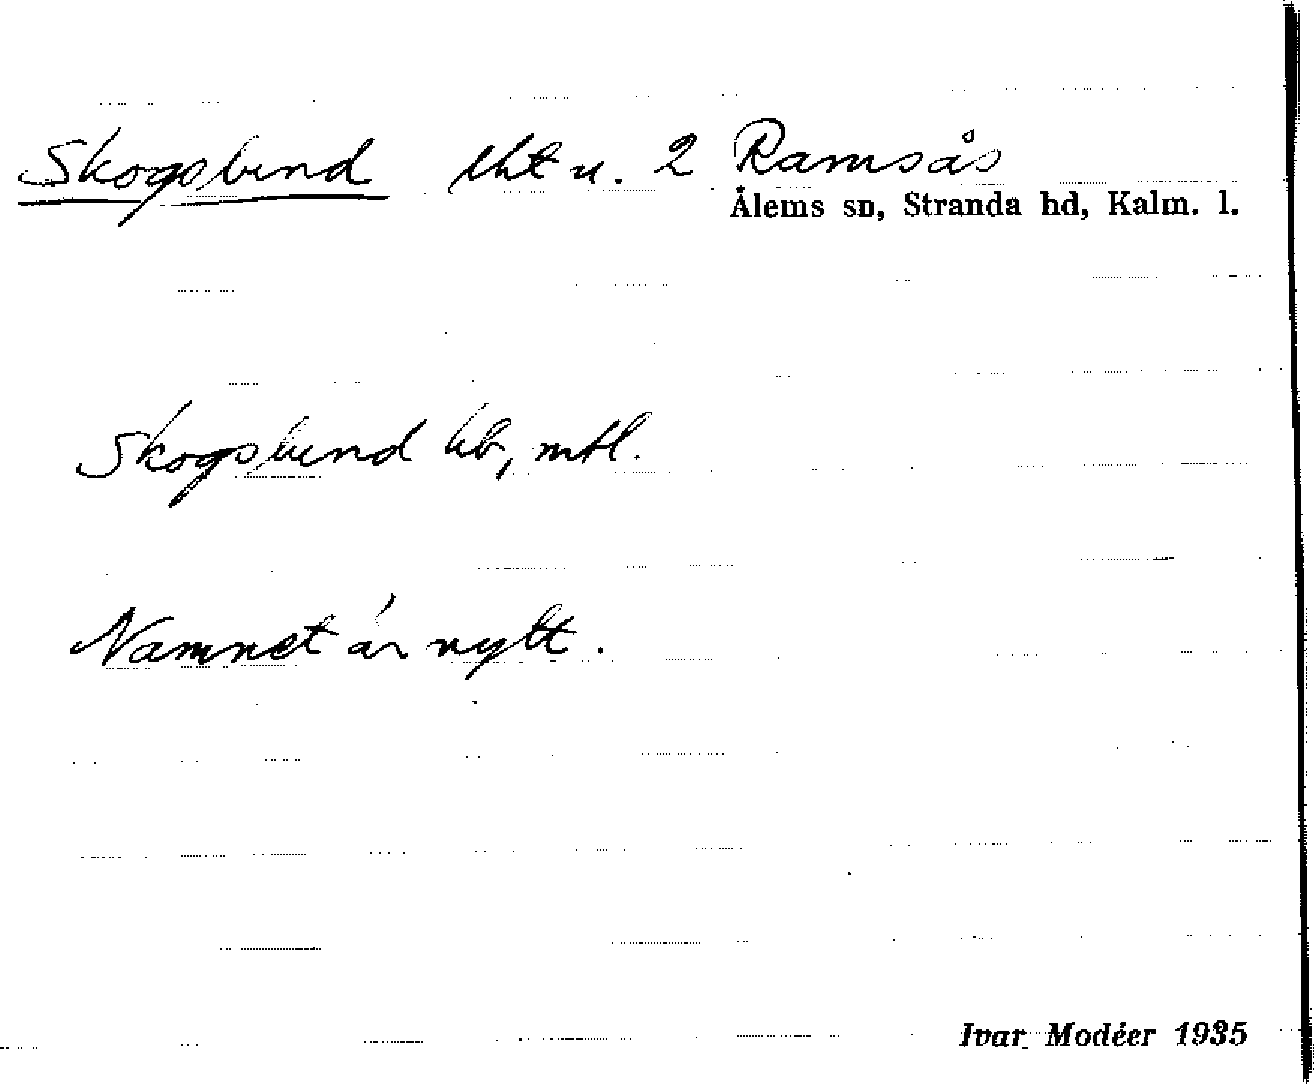 Skogslund lht u. 2 Ramsås
Ålems sn, Stranda hd, Kalm. l.
Skogslund hb, mtl.
Namnet är nytt.
Ivar Modéer 1935